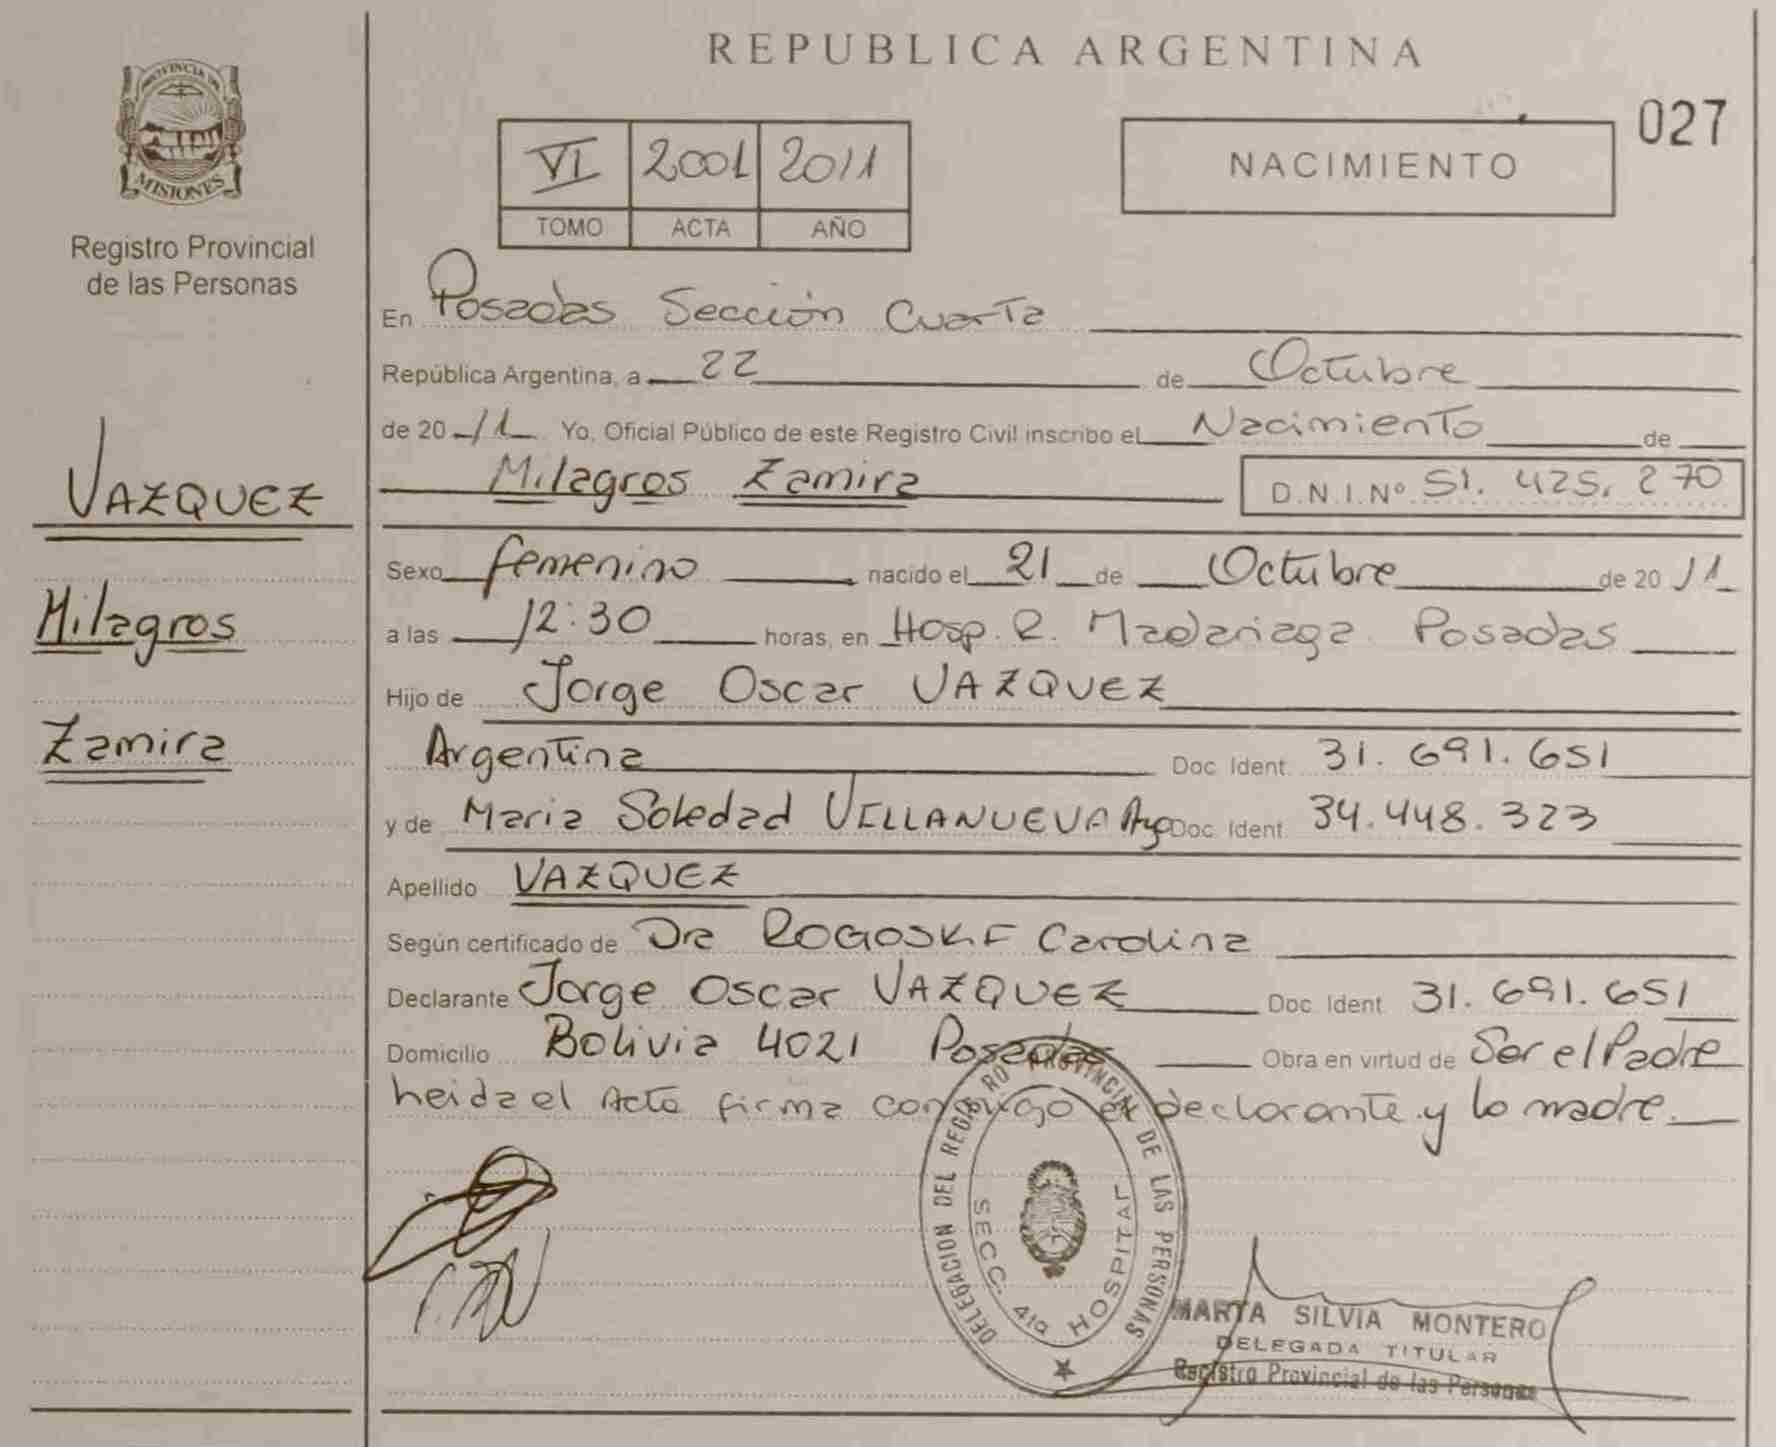 REPUBLICA ARGENTINA
027
PROVINCIA DE
MISIONES
Registro Provincial
de las Personas
VI 2001 2011
TOMO ACTA AÑO
NACIMIENTO
En Posadas Sección Cuarta
República Argentina, a 22 de Octubre
de 20 11 Yo, Oficial Público de este Registro Civil inscribo el Nacimiento de
Milagros Zamira D.N.I.Nº 51.425.270
VAZQUEZ
Milagros
Zamira
Sexo femenino nacido el 21 de Octubre de 20 11
a las 12:30 horas, en Hosp. R. Madariaga Posadas
Hijo de Jorge Oscar VAZQUEZ
Argentina Doc. Ident. 31.691.651
y de Maria Soledad VILLANUEVA Arg Doc. Ident. 34.448.323
Apellido VAZQUEZ
Según certificado de Dra ROGOSKI Carolina
Declarante Jorge Oscar VAZQUEZ Doc. Ident. 31.691.651
Domicilio Bolivia 4021 Posadas Obra en virtud de Ser el Padre
heida el Acta firma conmigo el declarante y la madre.
DELEGACION DEL REGISTRO PROVINCIAL DE LAS PERSONAS
SECC. 4ta HOSPITAL
MARTA SILVIA MONTERO
DELEGADA TITULAR
Registro Provincial de las Personas